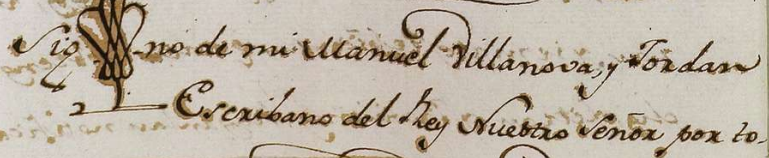 Sig-no de mi Manuel Villanova, y Jordan
Escribano del Rey Nuestro Señor por to-